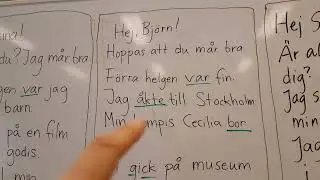 du? Jag mår bra
var jag
barn.
på en film
godis.
Hej, Björn!
Hoppas att du mår bra
Förra helgen var fin.
Jag åkte till Stockholm
Min Cecilia bor
gick på museum
Hej
Är
dig?
Jag
min